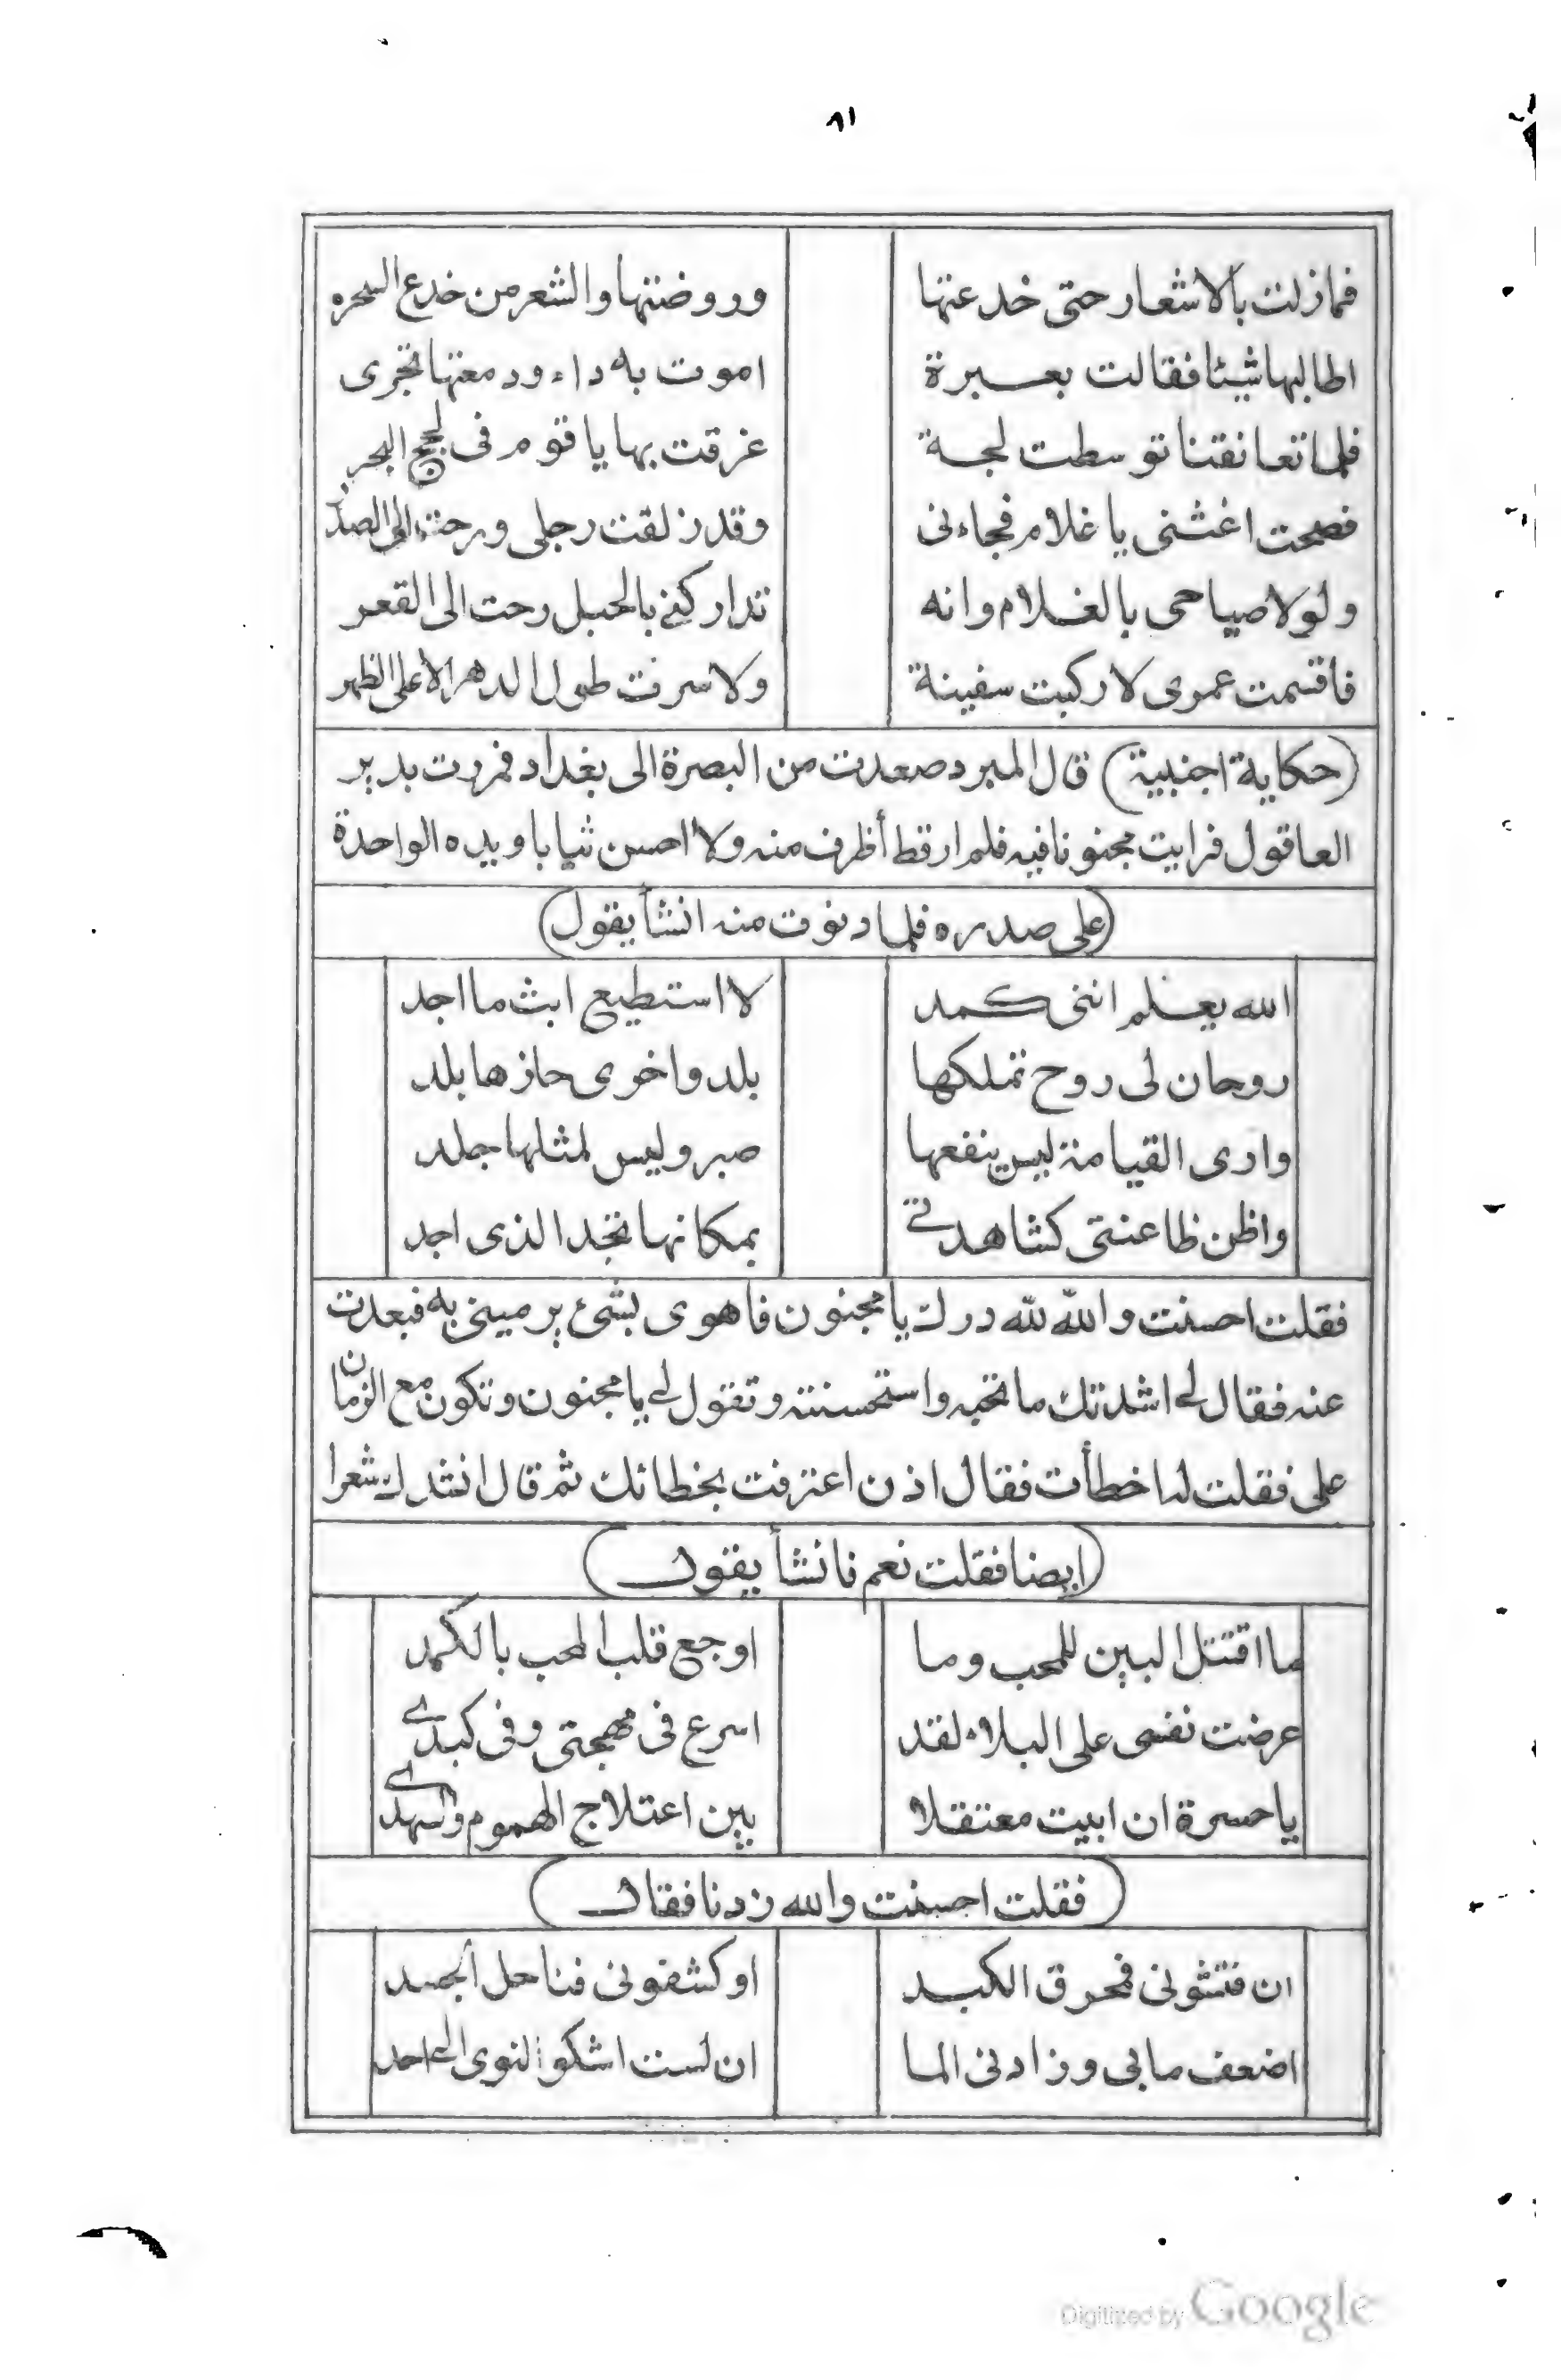 ٨١
فمازلت بالاشعار حتى خدعتها وروضتها والشعر من خدع السحره
اطالبها شيئا فقالت بعبرة اموت به داء ودمعتها تجرى
فلما تعانقنا توسطت لجة غرقت بها يا قوم فى لجج البحر
فصحت اغثنى يا غلام فجاءنى وقد زلقت رجلى ورحت الى الصدر
ولولا صياحى بالغلام وانه تداركنى بالحبل رحت الى القعر
فاقسمت عمرى لا ركبت سفينة ولا سرت طول الدهر الا على الظهر
(حكاية اجنبية) قال المبرد صعدت من البصرة الى بغداد فمررت بدير
العاقول فرايت مجنونا فيه فلم ار قط أظرف منه ولا احسن ثيابا ويده الواحدة
(على صدره فلما دنوت منه انشأ يقول)
الله يعلم اننى كمد لا استطيع ابث ما اجد
روحان لى روح تملكها بلد واخرى حازها بلد
وارى القيامة ليس ينفعها صبر وليس لمثلها جلد
واظن ظاعنتى كشاهدتى بمكانها تجد الذى اجد
فقلت احسنت والله لله درك يا مجنون فاهوى بشئ يرمينى به فبعدت
عنه فقال لى انشدتك ما تحبه واستحسنته وتقول لى يا مجنون وتكون مع الزمان
على فقلت له اخطأت فقال اذن اعترفت بخطائك ثم قال انشدك شعرا
(ايضا فقلت نعم فانشأ يقول)
ما اقتتل البين للمحب وما اوجع قلب المحب بالكمد
عرضت نفسى على البلاء لقد اسرع فى مهجتى وفى كبدى
يا حسرة ان ابيت معتقلا بين اعتلاج الهموم والسهدى
(فقلت احسنت والله زدنا فقال)
ان فتشونى فمحرق الكبد او كشفونى فناحل الجسد
اضعف ما بى وزادنى الما ان لست اشكو النوى الى احد
Digitized by Google